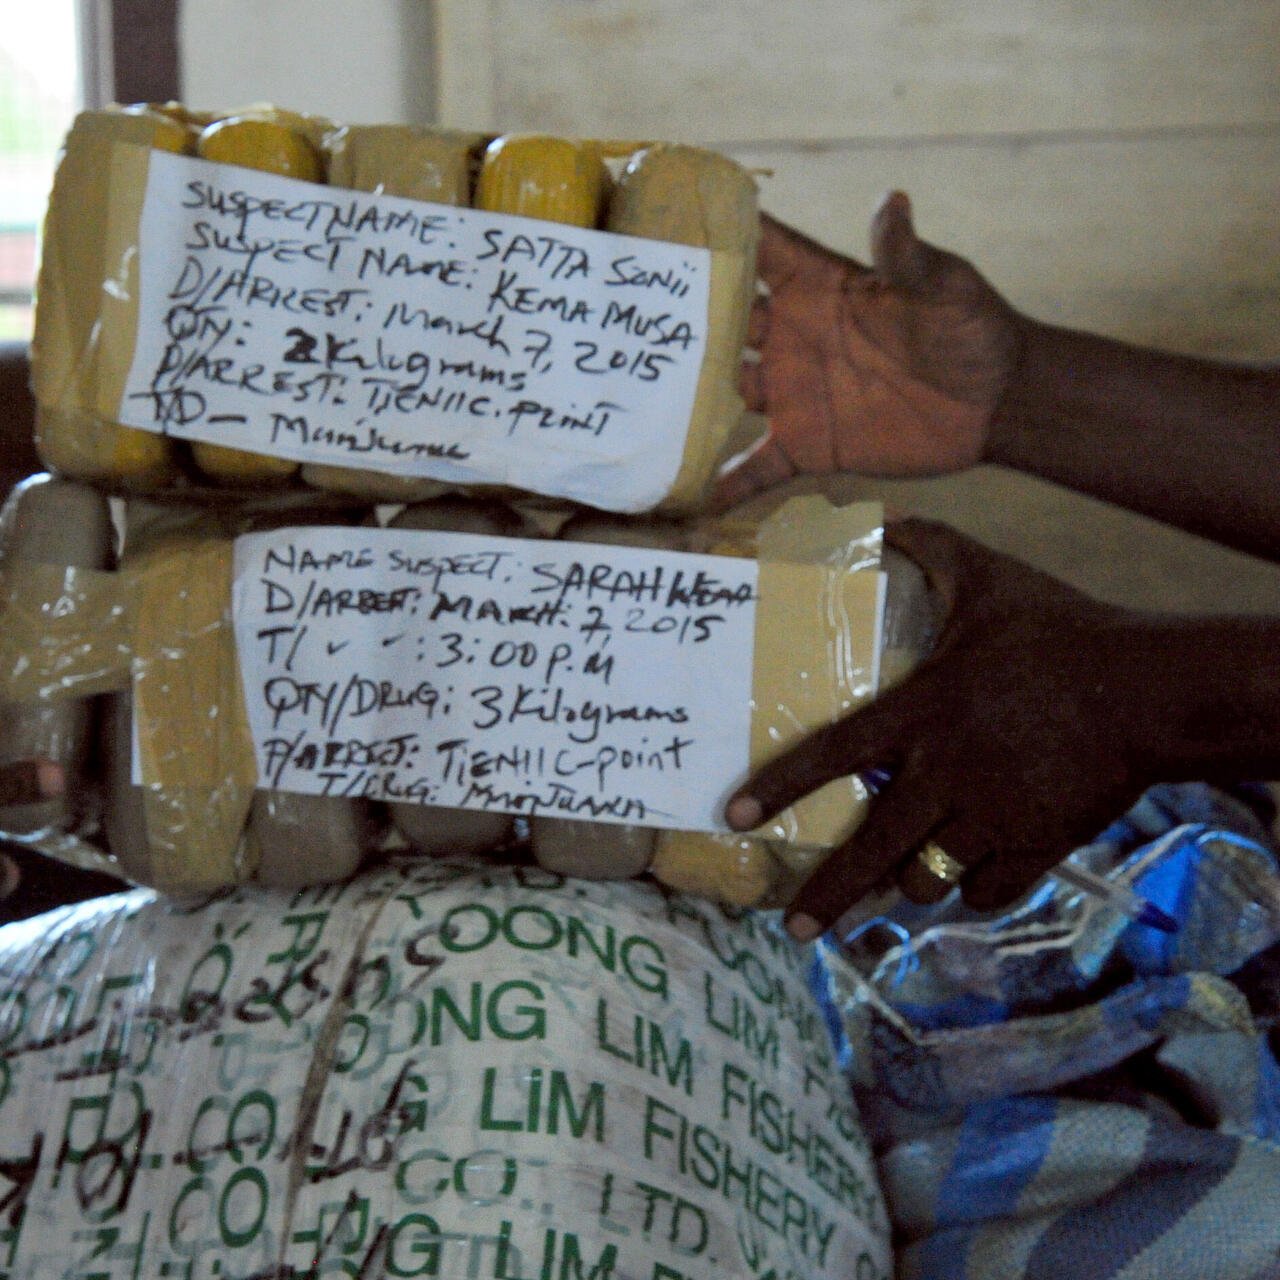 SUSPECT NAME: SATTA SONii
SUSPECT NAME: KEMA MUSA
D/ARREST: March 7, 2015
QTY: 2 Kilograms
P/ARREST: TIENII C. POINT
T/D - Marijuana
NAME SUSPECT: SARAH WEAR
D/ARREST: MARCH: 7, 2015
T/ " ": 3:00 P.M
QTY/DRUG: 3 Kilograms
P/ARREST: TIENII C-point
T/DRUG: MARIJUANA
LTD.
OONG LIM
OONG LIM FISHERY
G LIM FISHERY CO
CO., LTD.
G LIM